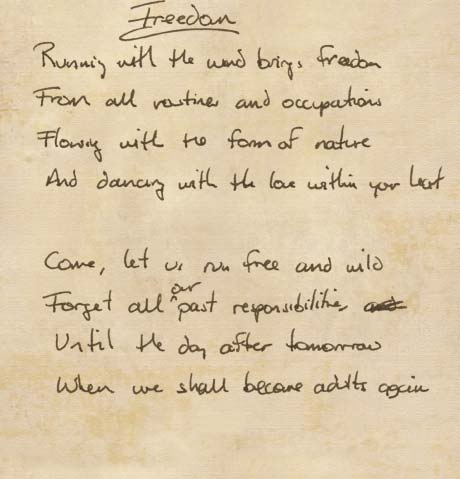 Freedom
Running with the wind brings freedom
From all routines and occupations
Flowing with the form of nature
And dancing with the love within your heart
Come, let us run free and wild
Forget all our past responsibilities
Until the day after tomorrow
When we shall become adults again